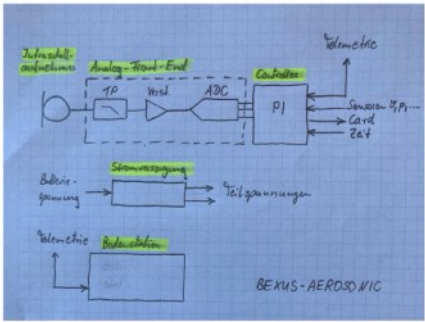 Infraschall-
aufnehmer
Analog-Front-End
TP
Verst.
ADC
Controller
PI
Telemetrie
Sensoren
Card
Zeit
Stromversorgung
Batterie-
spannung
Teilspannungen
Telemetrie
Bodenstation
BEXUS-AEROSONIC